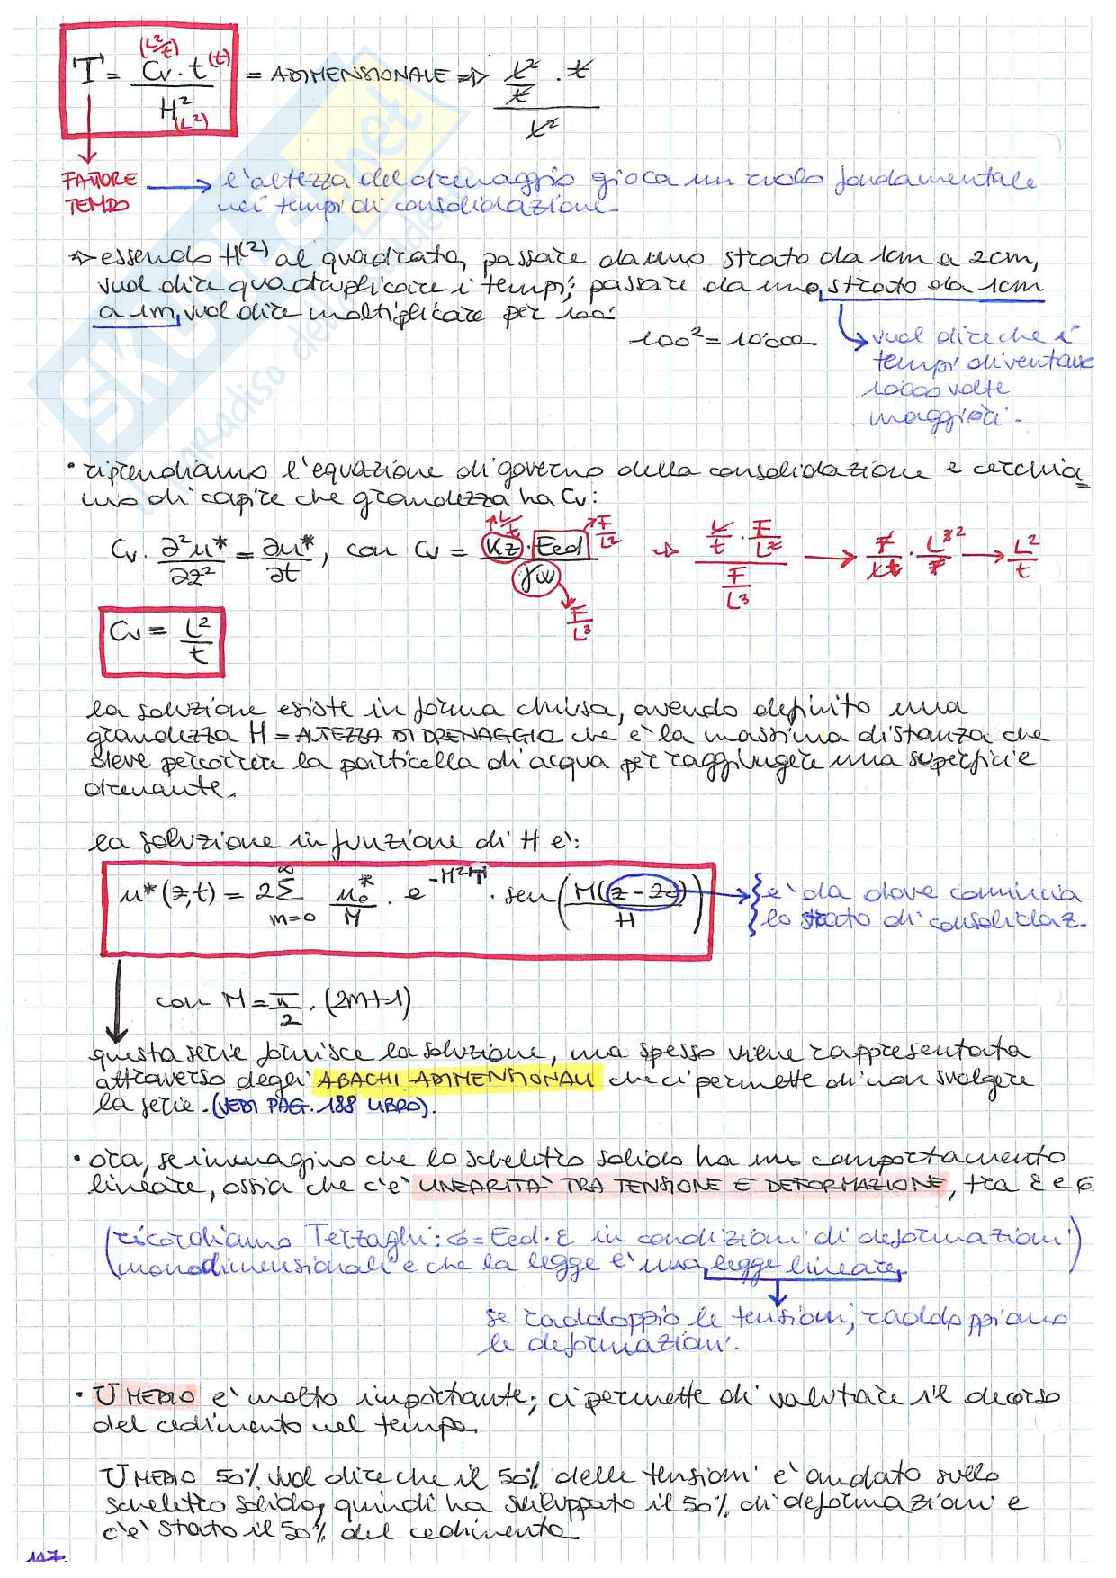 T = Cv (L²/t) · t (t) / H² (L²) = ADIMENSIONALE ⇒ L²/t · t / L²
FATTORE TEMPO → l'altezza del drenaggio gioca un ruolo fondamentale
nei tempi di consolidazione.
⇒ essendo H(²) al quadrato, passare da uno strato da 1cm a 2cm,
vuol dire quadruplicare i tempi; passare da uno strato da 1cm
a 1m, vuol dire moltiplicare per 100:
100² = 10'000
vuol dire che i
tempi diventano
10000 volte
maggiori.
• riprendiamo l'equazione di governo della consolidazione e cerchia_
mo di capire che grandezza ha Cv:
Cv · ∂²u*/∂z² = ∂u*/∂t, con Cv = kz · Eed / γw ⇒ L/t · F/L² / F/L³ → F/Lt · L³²/F → L²/t
L/t F/L² F/L³
Cv = L²/t
la soluzione esiste in forma chiusa, avendo definito una
grandezza H = ALTEZZA DI DRENAGGIO che è la massima distanza che
deve percorrere la particella di acqua per raggiungere una superficie
drenante.
la soluzione in funzione di H è:
u*(z,t) = 2 ∞Σm=0 u₀*/M · e^-M²T · sen (M(z-2c)/H) → { è da dove comincia
lo strato di consolidaz.
con M = π/2 · (2m+1)
questa serie fornisce la soluzione, ma spesso viene rappresentata
attraverso degli ABACHI ADIMENSIONALI che ci permette di non svolgere
la serie. (VEDI PAG. 188 LIBRO).
• ora, se immagino che lo scheletro solido ha un comportamento
lineare, ossia che c'è LINEARITA' TRA TENSIONE E DEFORMAZIONE, tra ε e σ
(ricordiamo Terzaghi: σ = Eed · ε in condizioni di deformazioni
monodimensionali e che la legge è una legge lineare)
se raddoppio le tensioni, raddoppiamo
le deformazioni.
• U MEDIO è molto importante; ci permette di valutare il decorso
del cedimento nel tempo.
U MEDIO 50% vuol dire che il 50% delle tensioni è andato sullo
scheletro solido, quindi ha sviluppato il 50% di deformazioni e
c'è stato il 50% del cedimento
117
SKUOLA.net
il paradiso dello studente